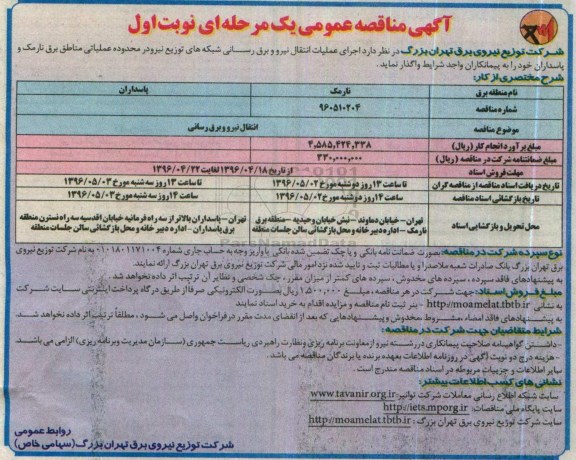 آگهی مناقصه عمومی یک مرحله ای نوبت اول
شرکت توزیع نیروی برق تهران بزرگ در نظر دارد اجرای عملیات انتقال نیرو و برق رسانی شبکه های توزیع نیرو در محدوده عملیاتی مناطق برق نارمک و
پاسداران خود را به پیمانکاران واجد شرایط واگذار نماید.
شرح مختصری از کار:
نام منطقه برق نارمک پاسداران
شماره مناقصه ۹۶۰۵۱۰۲۰۴
موضوع مناقصه انتقال نیرو و برق رسانی
مبلغ برآورد انجام کار (ریال) ۴,۵۸۵,۴۲۴,۳۳۸
مبلغ ضمانتنامه شرکت در مناقصه (ریال) ۳۳۰,۰۰۰,۰۰۰
مهلت فروش اسناد از تاریخ ۱۳۹۶/۰۴/۱۸ لغایت ۱۳۹۶/۰۴/۲۲
تاریخ دریافت اسناد مناقصه از مناقصه گران تا ساعت ۱۳ روز دوشنبه مورخ ۱۳۹۶/۰۵/۰۲ تا ساعت ۱۳ روز سه شنبه مورخ ۱۳۹۶/۰۵/۰۳
تاریخ بازگشائی اسناد مناقصه ساعت ۱۴ روز دوشنبه مورخ ۱۳۹۶/۰۵/۰۲ ساعت ۱۴ روز سه شنبه مورخ ۱۳۹۶/۰۵/۰۳
محل تحویل و بازگشایی اسناد تهران - خیابان دماوند - نبش خیابان وحیدیه - منطقه برق تهران - پاسداران بالاتر از سه راه فرمانیه خیابان اقدسیه سه راه نسترن منطقه
نارمک - اداره دبیر خانه و محل بازگشائی سالن جلسات منطقه برق پاسداران - اداره دبیر خانه و محل بازگشائی سالن جلسات منطقه
نوع سپرده شرکت در مناقصه: بصورت ضمانت نامه بانکی و یا چک تضمین شده بانکی یا واریز وجه به حساب جاری شماره ۰۱۰۱۸۰۱۱۷۱۰۰۴ به نام شرکت توزیع نیروی
برق تهران بزرگ بانک صادرات شعبه ملاصدرا و یا مطالبات ثبت و تایید شده نزد امور مالی شرکت توزیع نیروی برق تهران بزرگ ارائه نمایند.
به پیشنهادهای فاقد سپرده، سپرده های مخدوش، سپرده های کمتر از میزان مقرر، چک شخصی و نظایر آن ترتیب اثر داده نخواهد شد.
مبلغ فروش اسناد: جهت شرکت در هر مناقصه، مبلغ ۱/۵۰۰/۰۰۰ ریال بصورت الکترونیکی صرفا از طریق درگاه پرداخت اینترنتی سایت شرکت
به نشانی http://moamelat.tbtb.ir - بنر ثبت نام مناقصه و مزایده اقدام به خرید اسناد نمایند
به پیشنهادهای فاقد امضاء، مشروط، مخدوش و پیشنهادهایی که بعد از انقضای مدت مقرر در فراخوان واصل می شود، مطلقا ترتیب اثر داده نخواهد شد.
شرایط متقاضیان جهت شرکت در مناقصه:
-داشتن گواهینامه صلاحیت پیمانکاری در رشته نیرو از معاونت برنامه ریزی و نظارت راهبردی ریاست جمهوری (سازمان مدیریت و برنامه ریزی) الزامی می باشد.
- هزینه درج دو نوبت آگهی در روزنامه اطلاعات بعهده برنده یا برندگان مناقصه می باشد.
سایر اطلاعات و جزییات مربوطه در اسناد مناقصه مندرج است.
نشانی های کسب اطلاعات بیشتر:
سایت شبکه اطلاع رسانی معاملات شرکت توانیر: www.tavanir.org.ir
سایت پایگاه ملی مناقصات: http://iets.mporg.ir
سایت شرکت توزیع نیروی برق تهران بزرگ: http://moamelat.tbtb.ir
روابط عمومی
شرکت توزیع نیروی برق تهران بزرگ (سهامی خاص)